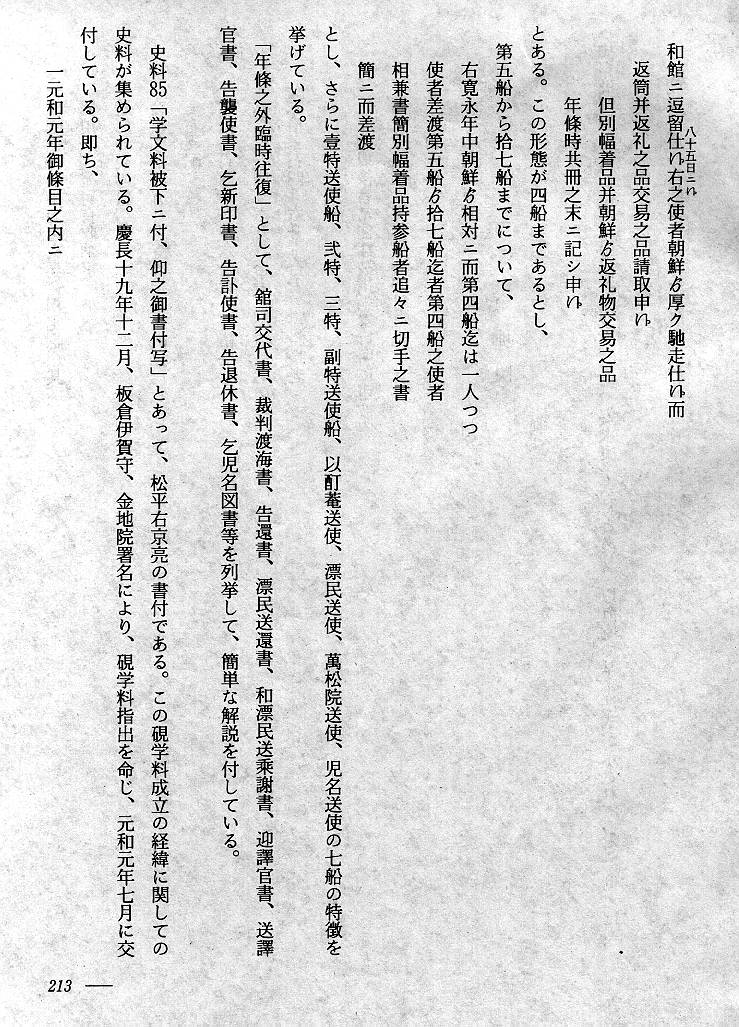 八十五日ニ而
和館ニ逗留仕候右之使者朝鮮ゟ厚ク馳走仕候而
返筒并返礼之品交易之品請取申候
但別幅着品并朝鮮ゟ返礼物交易之品
年條時共冊之末ニ記シ申候
とある。この形態が四船まであるとし、
第五船から拾七船までについて、
右寛永年中朝鮮ゟ相対ニ而第四船迄は一人つつ
使者差渡第五船ゟ拾七船迄者第四船之使者
相兼書簡別幅着品持参船者追々ニ切手之書
簡ニ而差渡
とし、さらに壹特送使船、弐特、三特、副特送使船、以酊菴送使、漂民送使、萬松院送使、児名送使の七船の特徴を
挙げている。
「年條之外臨時往復」として、舘司交代書、裁判渡海書、告還書、漂民送還書、和漂民送乗謝書、迎譯官書、送譯
官書、告襲使書、乞新印書、告訃使書、告退休書、乞児名図書等を列挙して、簡単な解説を付している。
史料85「学文料被下ニ付、仰之御書付写」とあって、松平右京亮の書付である。この硯学料成立の経緯に関しての
史料が集められている。慶長十九年十二月、板倉伊賀守、金地院署名により、硯学料指出を命じ、元和元年七月に交
付している。即ち、
一元和元年御條目之内ニ
213 —